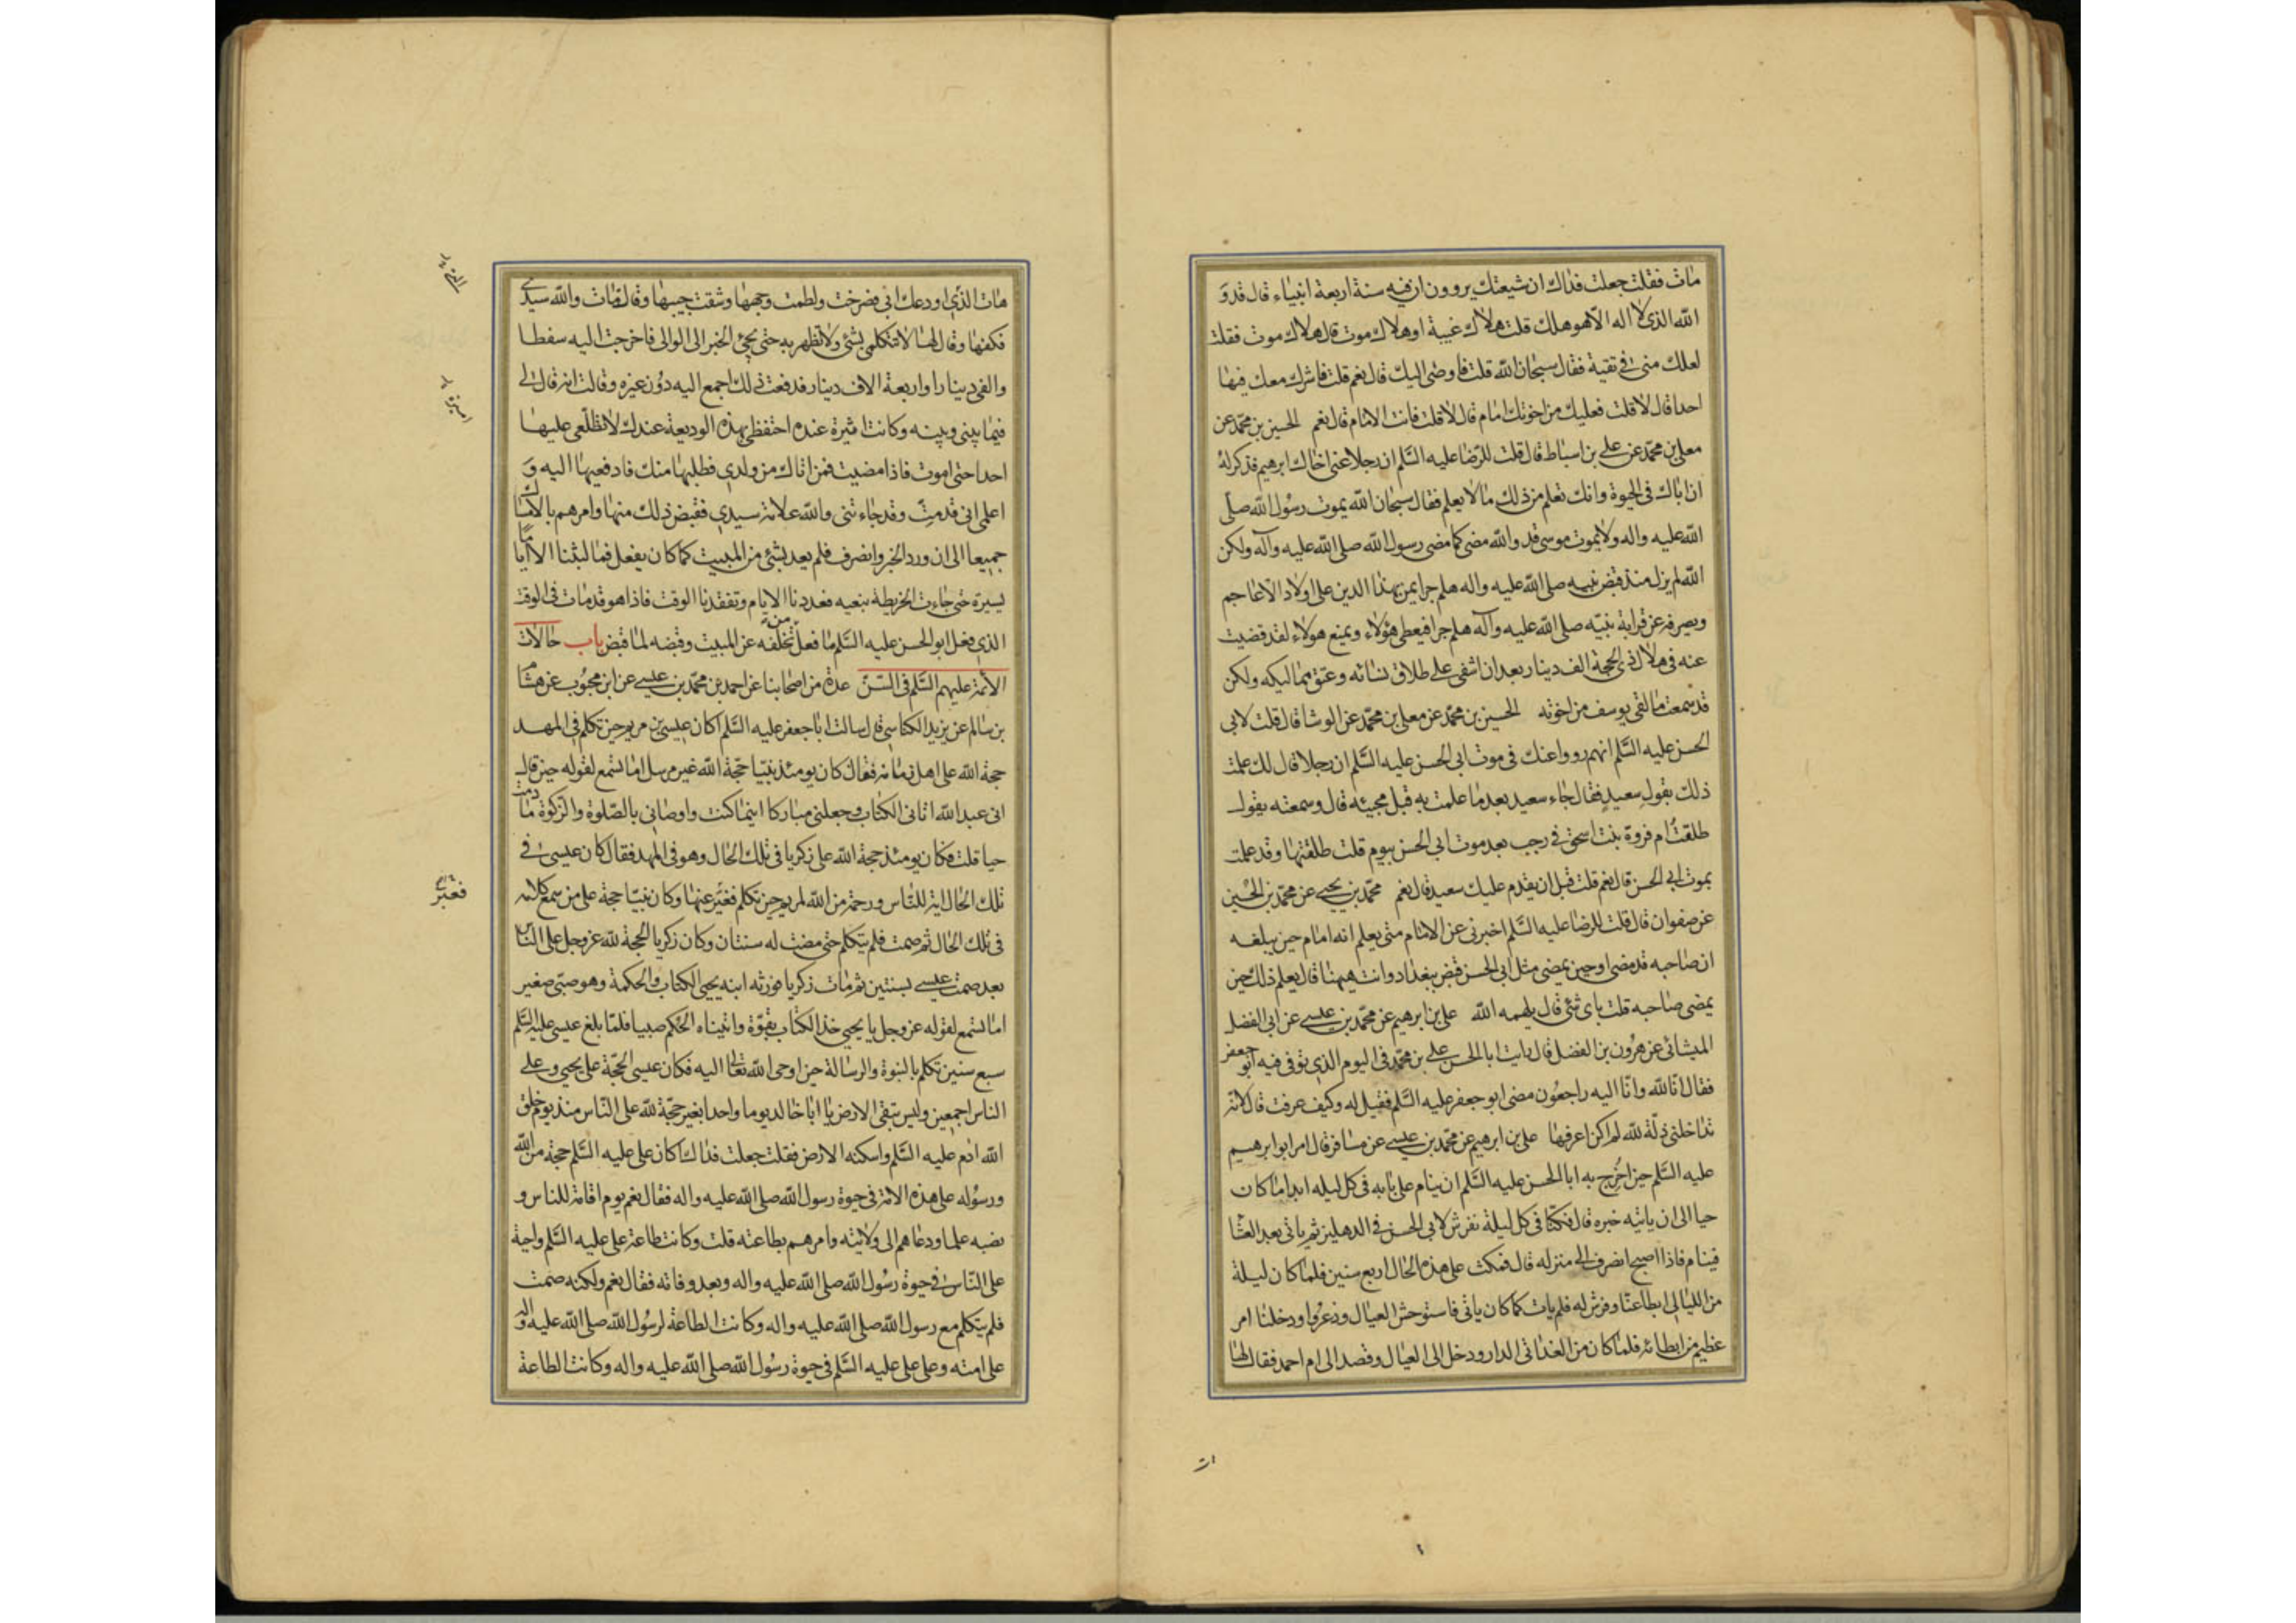 مات فقلت جعلت فداك ان شيعتك يروون ان فيه سنة اربعة انبياء قال قد و
الله الذي لا اله الا هو هلك قلت هلاك غيبة او هلاك موت قال هلاك موت فقلت
لعلك مني في تقية فقال سبحان الله قلت فاوصى اليك قال نعم قلت فاشرك معك فيها
احدا قال لا قلت فعليك من اخوتك امام قال لا قلت فانت الامام قال نعم الحسين بن محمد عن
معلى بن محمد عن علي بن اسباط قال قلت للرضا عليه السلم ان رجلا عنى اخاك ابرهيم فذكر له
ان اباك في الحيوة وانك تعلم من ذلك ما لا يعلم فقال سبحان الله يموت رسول الله صلى
الله عليه واله ولا يموت موسى قد والله مضى كما مضى رسول الله صلى الله عليه وآله ولكن
الله لم يزل منذ قبض نبيه صلى الله عليه واله هلم جرا يمن بهذا الدين على اولاد الاعاجم
ويصرفه عن قرابة نبيه صلى الله عليه وآله هلم جرا فيعطى هؤلاء ويمنع هؤلاء لقد قضيت
عنه في هلال ذي الحجة الف دينار بعد ان اشفى على طلاق نسائه وعتق مماليكه ولكن
قد سمعت ما لقى يوسف من اخوته الحسين بن محمد عن معلى بن محمد عن الوشا قال قلت لابي
الحسن عليه السلم انهم رووا عنك في موت ابي الحسن عليه السلم ان رجلا قال لك علمت
ذلك بقول سعيد فقال جاء سعيد بعد ما علمت به قبل مجيئه قال وسمعته يقول
طلقت ام فروة بنت اسحق في رجب بعد موت ابي الحسن بيوم قلت طلقتها وقد علمت
بموت ابي الحسن قال نعم قلت قبل ان يقدم عليك سعيد قال نعم محمد بن يحيى عن محمد بن الحسين
عن صفوان قال قلت للرضا عليه السلم اخبرني عن الامام متى يعلم انه امام حين يبلغه
ان صاحبه قد مضى او حين يمضى مثل ابي الحسن قبض ببغداد وانت ههنا قال يعلم ذلك حين
يمضى صاحبه قلت باي شئ قال يلهمه الله علي بن ابرهيم عن محمد بن عيسى عن ابي الفضل
الميشائى عن هرون بن الفضل قال رايت ابا الحسن علي بن محمد في اليوم الذي توفى فيه ابو جعفر
فقال انا لله وانا اليه راجعون مضى ابو جعفر عليه السلم فقيل له وكيف عرفت قال لانه
تداخلني ذلة لله لم اكن اعرفها علي بن ابرهيم عن محمد بن عيسى عن مسافر قال امر ابو ابرهيم
عليه السلم حين اخرج به ابا الحسن عليه السلم ان ينام على بابه في كل ليله ابدا ما كان
حيا الى ان ياتيه خبره قال فكنا في كل ليلة نفرش لابي الحسن في الدهليز ثم ياتى بعد العشا
فينام فاذا اصبح انصرف الى منزله قال فمكث على هذه الحال اربع سنين فلما كان ليلة
من الليالي ابطا عنا وفرش له فلم يات كما كان ياتى فاستوحش العيال وذعروا ودخلنا امر
عظيم من ابطائه فلما كان من الغد اتى الدار ودخل الى العيال وقصد الى ام احمد فقال لها
هات الذي اودعك ابي فصرخت ولطمت وجهها وشقت جيبها وقالت مات والله سيدي
فكفها وقال لها لا تتكلمي بشئ ولا تظهريه حتى يجئ الخبر الى الوالي فاخرجت اليه سفطا
والفي دينار او اربعة الاف دينار فدفعت ذلك اجمع اليه دون غيره وقالت انه قال لي
فيما بيني وبينه وكانت اثيرة عنده احتفظي بهذه الوديعة عندك لا تطلعي عليها
احدا حتى اموت فاذا مضيت فمن اتاك من ولدي فطلبها منك فادفعيها اليه و
اعلمي اني قد مت وقد جاءتني والله علامة سيدي فقبض ذلك منها وامرهم بالامساك
جميعا الى ان ورد الخبر وانصرف فلم يعد بشئ من المبيت كما كان يفعل فما لبثنا الا اياما
يسيرة حتى جاءت الخريطة بنعيه فعددنا الايام وتفقدنا الوقت فاذا هو قد مات في الوقت
الذي فعل ابو الحسن عليه السلم ما فعل من تخلفه عن المبيت وقبضه لما قبض باب حالات
الائمة عليهم السلم في السن عدة من اصحابنا عن احمد بن محمد بن عيسى عن ابن محبوب عن هشام
بن سالم عن يزيد الكناسي قال سالت ابا جعفر عليه السلم اكان عيسى بن مريم حين تكلم في المهد
حجة الله على اهل زمانه فقال كان يومئذ نبيا حجة الله غير مرسل اما تسمع لقوله حين قال
اني عبد الله اتاني الكتاب وجعلني مباركا اينما كنت واوصاني بالصلوة والزكوة ما دمت
حيا قلت فكان يومئذ حجة الله على زكريا في تلك الحال وهو في المهد فقال كان عيسى في
تلك الحال اية للناس ورحمة من الله لمريم حين تكلم فعبر عنها وكان نبيا حجة على من سمع كلامه
في تلك الحال ثم صمت فلم يتكلم حتى مضت له سنتان وكان زكريا الحجة لله عز وجل على الناس
بعد صمت عيسى بسنتين ثم مات زكريا فورثه ابنه يحيى الكتاب والحكمة وهو صبي صغير
اما تسمع لقوله عز وجل يا يحيى خذ الكتاب بقوة واتيناه الحكم صبيا فلما بلغ عيسى عليه السلم
سبع سنين تكلم بالنبوة والرسالة حين اوحى الله تعالى اليه فكان عيسى الحجة على يحيى وعلى
الناس اجمعين وليس تبقى الارض يا ابا خالد يوما واحدا بغير حجة لله على الناس منذ يوم خلق
الله ادم عليه السلم واسكنه الارض فقلت جعلت فداك اكان علي عليه السلم حجة من الله
ورسوله على هذه الامة في حيوة رسول الله صلى الله عليه واله فقال نعم يوم اقامه للناس و
نصبه علما ودعاهم الى ولايته وامرهم بطاعته قلت وكانت طاعة علي عليه السلم واجبة
على الناس في حيوة رسول الله صلى الله عليه واله وبعد وفاته فقال نعم ولكنه صمت
فلم يتكلم مع رسول الله صلى الله عليه واله وكانت الطاعة لرسول الله صلى الله عليه واله
على امته وعلى علي عليه السلم في حيوة رسول الله صلى الله عليه واله وكانت الطاعة
فعبر